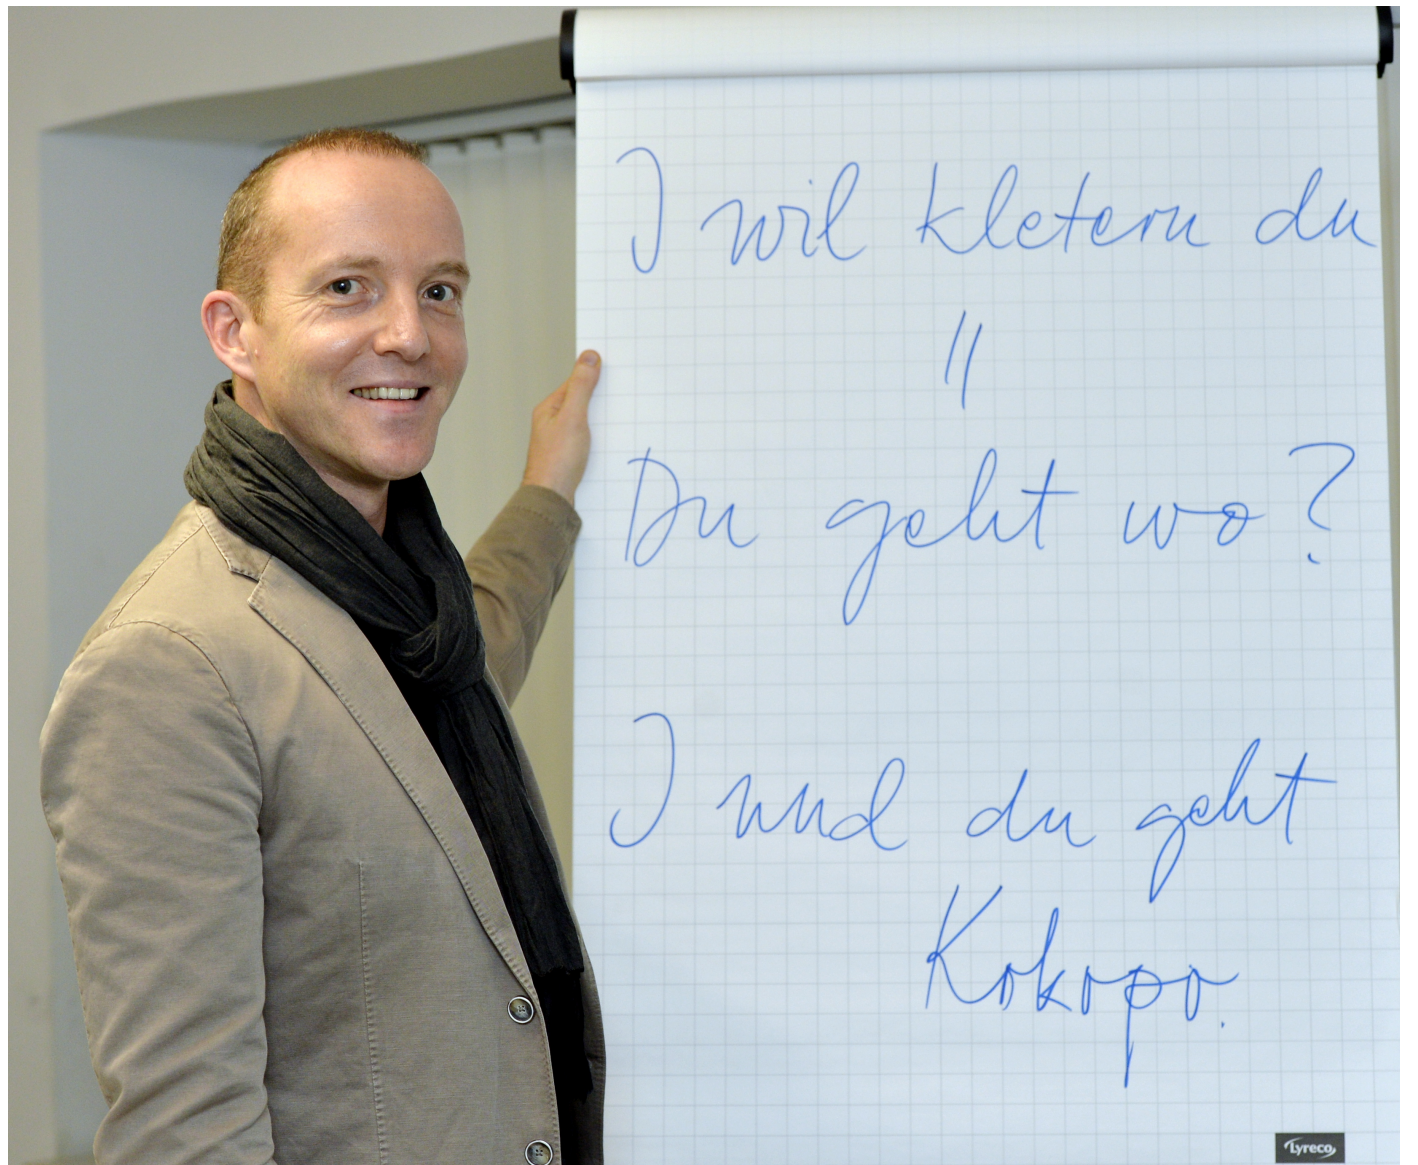 I wil kletern du
//
Du geht wo?
I und du geht
Kokopo.
Lyreco